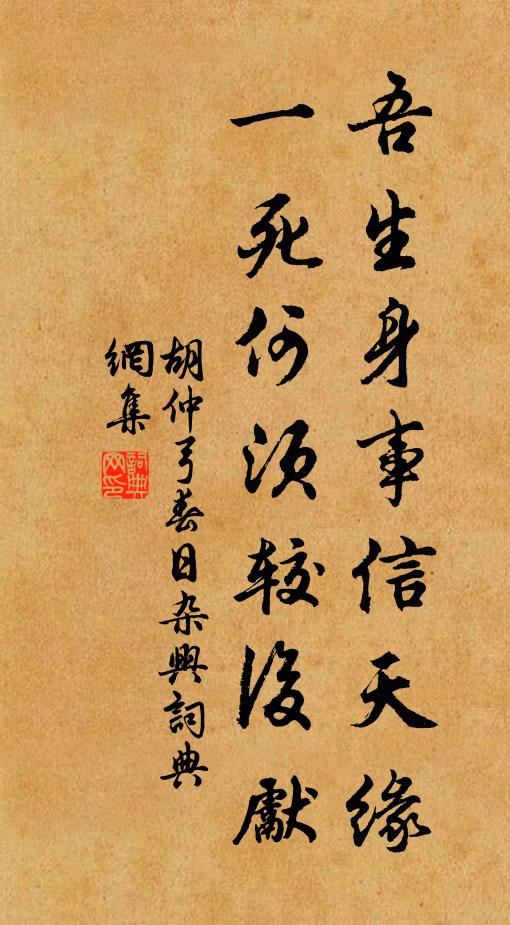 吾生身事信天缘
一死何须较後獻
胡仲弓春日杂興詞典
網集
詞典
网印